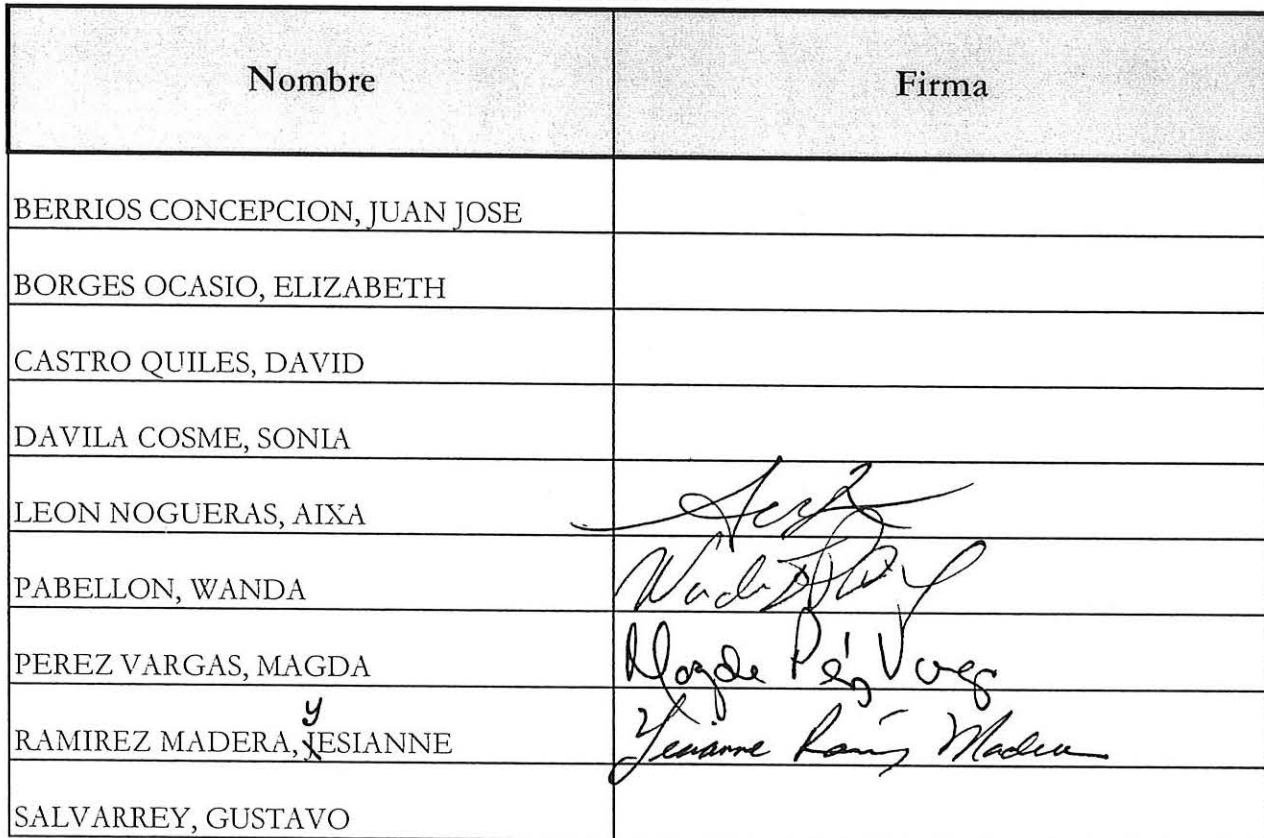 Nombre Firma
BERRIOS CONCEPCION, JUAN JOSE
BORGES OCASIO, ELIZABETH
CASTRO QUILES, DAVID
DAVILA COSME, SONIA
LEON NOGUERAS, AIXA
PABELLON, WANDA
PEREZ VARGAS, MAGDA Magda Pérez Vargas
y
RAMIREZ MADERA, JESIANNE Yesianne Ramírez Madera
SALVARREY, GUSTAVO